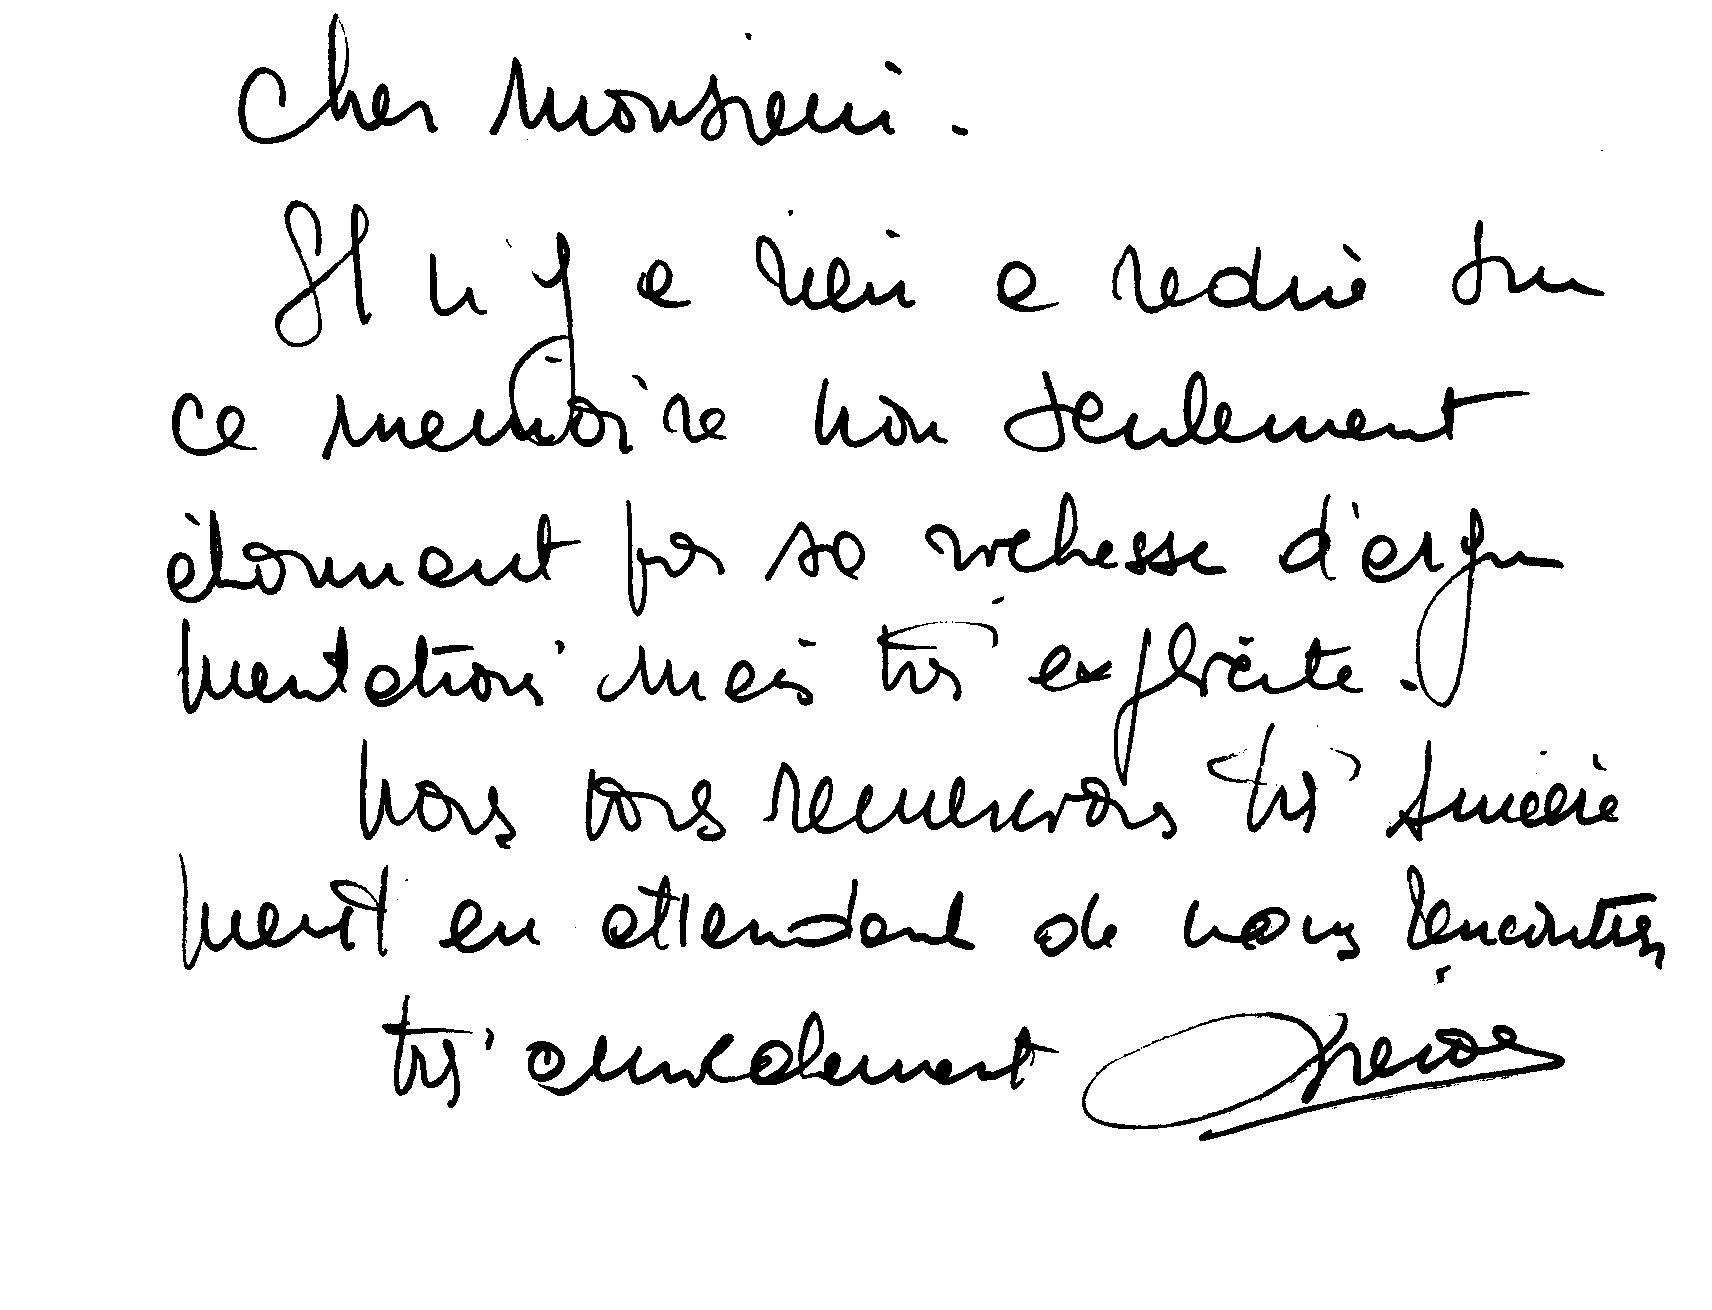 Cher Monsieur.
Il n'y a rien a redire sur
ce memoire non seulement
étonnant par sa richesse d'argu
mentations mais très explicite.
Nous vous remercions très sincère
ment en attendant de nous rencontrer
très amicalement